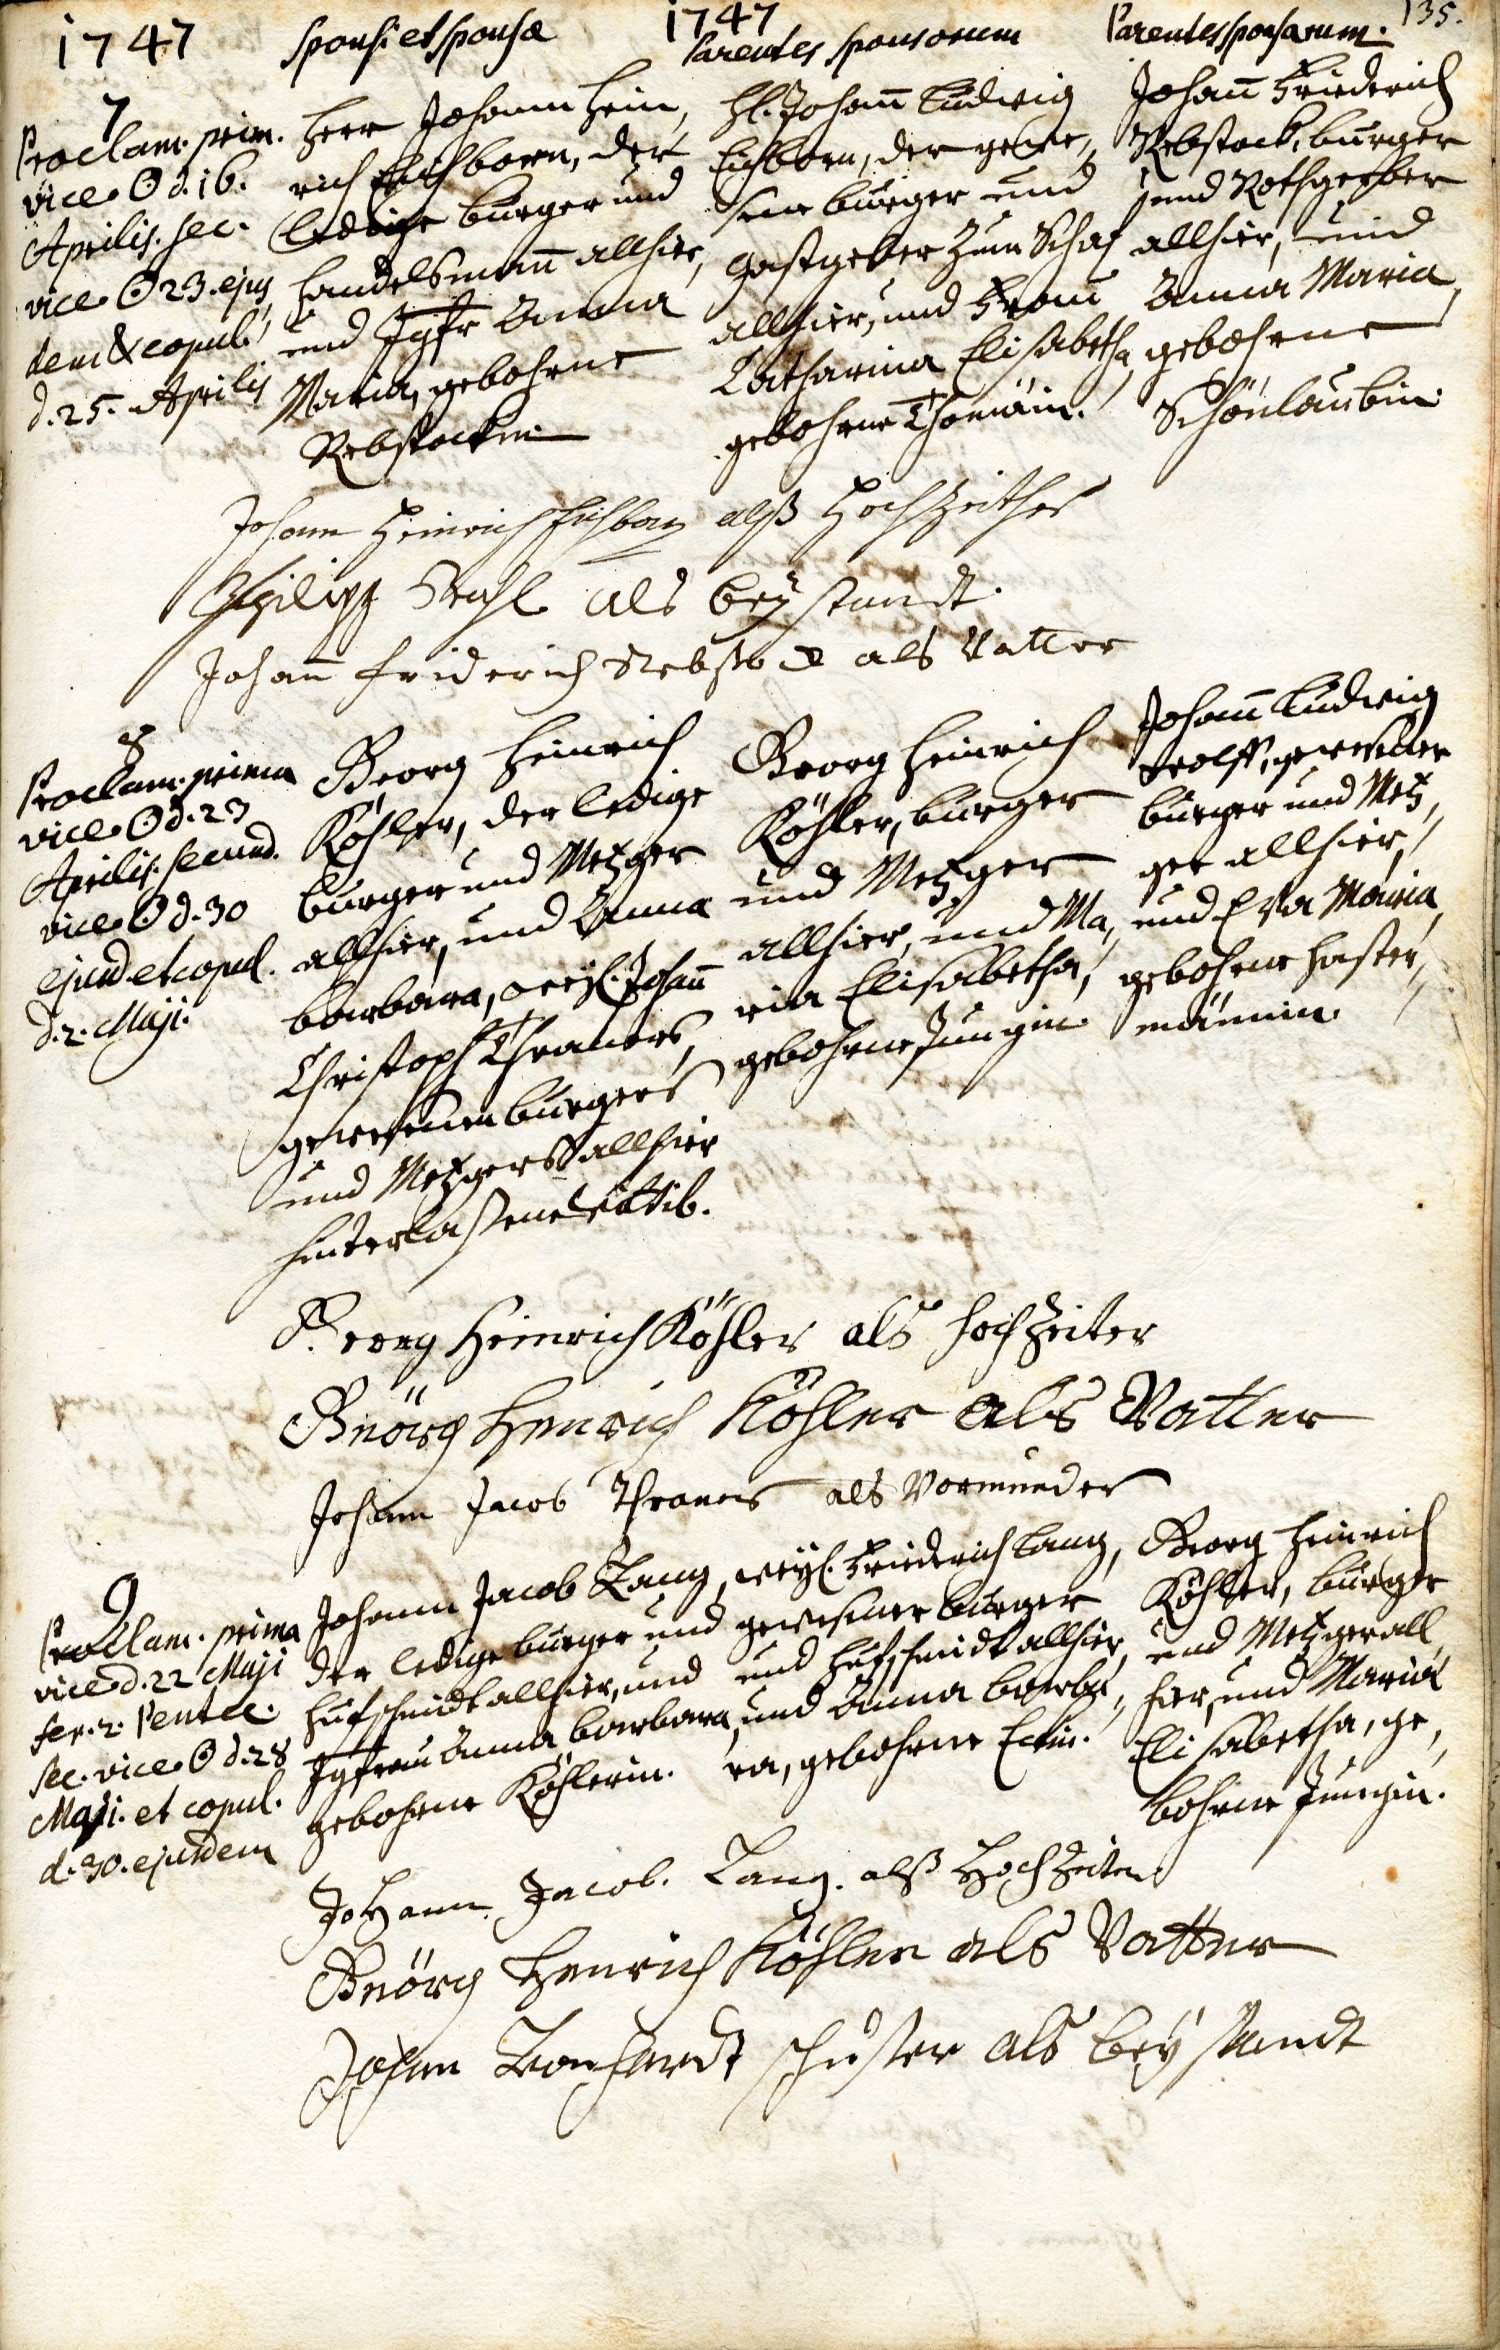 135.
1747 Sponsi et Sponsæ
1747
Parentes Sponsorum
Parentes Sponsarum.
7
Proclam. prim.
vice ☉ d. 16.
Aprilis. sec.
vice ☉ 23. ejus
dem & copul.
d. 25. Aprilis
Herr Johann Hein,
rich Eichborn, der
ledige burger und
Handelsmann allhier,
und Jgfr Anna
Maria, gebohrne
Rebstockin
H. Johann Ludwig
Eichborn, der gewe,
sene burger und
Gastgeber zum Schaf
allhier, und Frau
Catharina Elisabetha
gebohrne Thomäin.
Johann Friederich
Rebstock, burger
und Rothgerber
allhier, und
Anna Maria,
gebohrne
Schönlaubin
Johann Heinrich Eichborn alß Hochzeither
Philipp Stahl als beystandt.
Johann Friderich Rebstock als Vatter
8
Proclam. prima
vice ☉ d. 23
Aprilis. secund.
vice ☉ d. 30
ejusd. et copul.
d. 2. Maji.
Georg Heinrich
Köhler, der ledige
burger und Metzger
allhier, und Anna
barbara, weyl. Johann
Christoph Thraners,
gewesenen burgers
und Metzgers allhier
hinterlassene Wittib.
Georg Heinrich
Köhler, burger
und Metzger
allhier, und Ma,
ria Elisabetha,
gebohrne Jungin
Johann Ludwig
Wolff, gewesener
burger und Metz,
ger allhier,
und Eva Maria,
gebohrne Haster,
männin.
Georg Heinrich Köhler als hochzeiter
Geörg Henrich Köhler als Vatter
Johann Jacob Thraner als Vormunder
9
Proclam. prima
vice d. 22 Maji
fer. 2. Pentec.
sec. vice ☉ d. 28
Maji. et copul.
d. 30. ejusdem
Johann Jacob Lang,
der ledige burger und
Hufschmidt allhier, und
Jgfrau Anna barbara,
gebohrne Köhlerin.
weyl. Friederich Lang,
gewesener burger
und Hufschmidt allhier,
und Anna barba,
ra, gebohrne Eckin.
Georg Heinrich
Köhler, burger
und Metzger all,
hier, und Maria
Elisabetha, ge,
bohrne Jungin.
Johann Jacob. Lang. alß Hochzeiter
Geörg Henrich Köhler als Vatter
Johann Leonhardt Schuster als beystandt